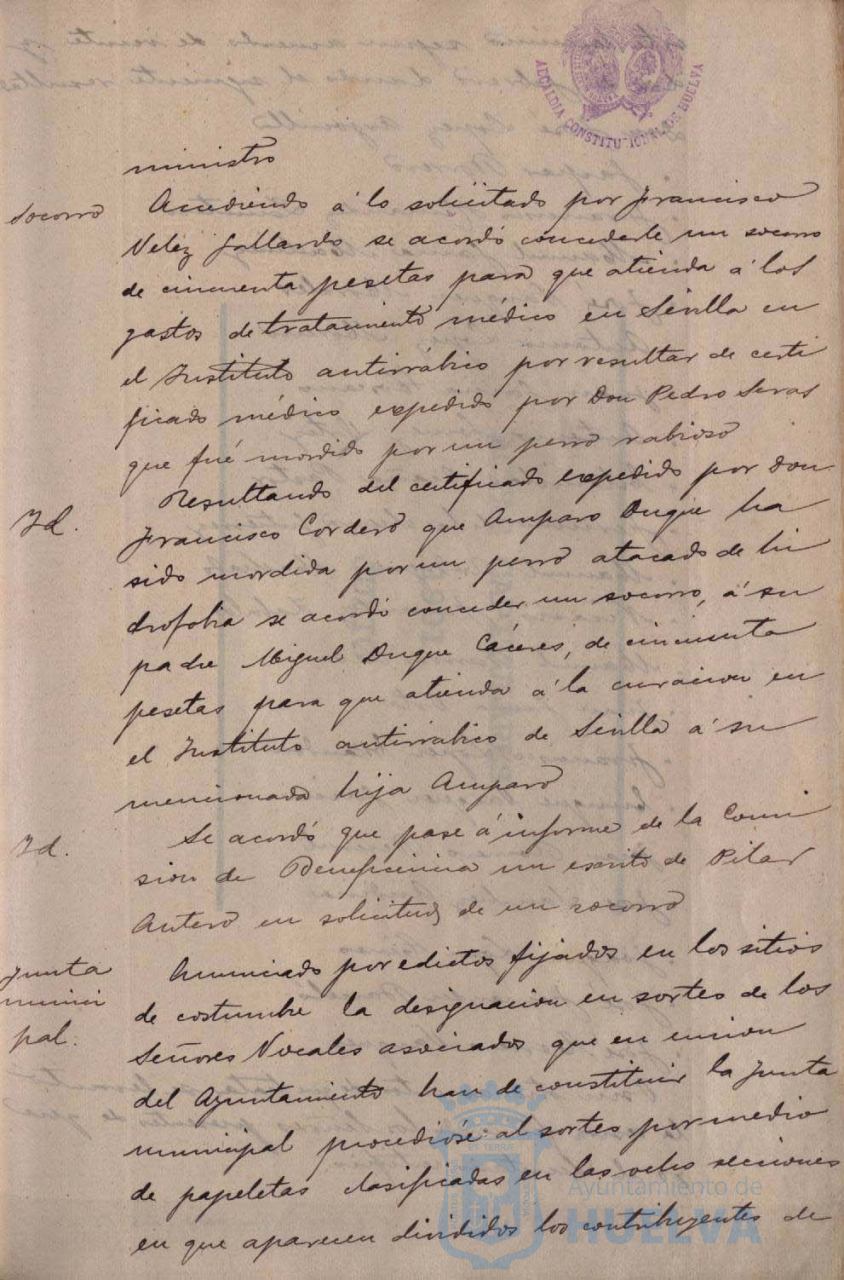 ALCALDIA CONSTITUCIONAL DE HUELVA
ministro
Socorro
Accediendo á lo solicitado por Francisco
Velez Gallardo se acordó concederle un socorro
de cincuenta pesetas para que atienda á los
gastos de tratamiento médico en Sevilla en
el Instituto antirrábico por resultar de certi
ficado médico expedido por Don Pedro Seras
que fué mordido por un perro rabioso
Id.
Resultando del certificado expedido por don
Francisco Cordero que Amparo Duque ha
sido mordida por un perro atacado de hi
drofobia se acordó conceder un socorro, á su
padre Miguel Duque Cáceres, de cincuenta
pesetas para que atienda á la curacion en
el Instituto antirrábico de Sevilla á su
mencionada hija Amparo
Id.
Se acordó que pase á informe de la Comi
sion de Beneficencia un escrito de Pilar
Antero en solicitud de un socorro
Junta
munici
pal.
Anunciado por edictos fijados en los sitios
de costumbre la designacion en sorteo de los
Señores Vocales asociados que en union
del Ayuntamiento han de constituir la Junta
municipal procediose al sorteo por medio
de papeletas clasificadas en las ocho secciones
en que aparecen divididos los contribuyentes de
Ayuntamiento de
HUELVA